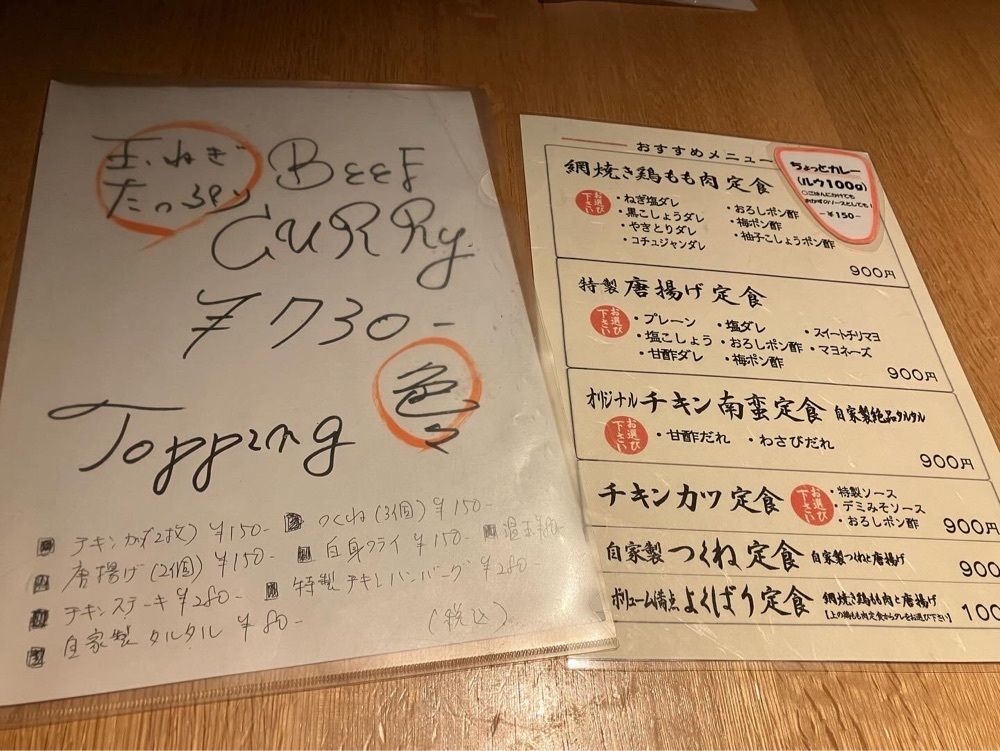 玉ねぎ
たっぷり
BEEF
CURRy
¥730-
Topping
色々
チキンカツ(2枚) ¥150-
つくね(3個) ¥150-
唐揚げ(2個) ¥150-
白身フライ ¥150-
温玉¥80-
チキンステーキ ¥280-
特製チキンハンバーグ ¥280
自家製タルタル ¥80-
(税込)
おすすめメニュー
ちょっとカレー
(ルウ100g)
○ごはんにかけても
おかずのソースとしても!
-¥150-
網焼き鶏もも肉定食
お選び下さい
・ねぎ塩ダレ ・おろしポン酢
・黒こしょうダレ ・梅ポン酢
・やきとりダレ ・柚子こしょうポン酢
・コチュジャンダレ
900円
特製 唐揚げ定食
お選び下さい
・プレーン ・塩ダレ ・スイートチリマヨ
・塩こしょう ・おろしポン酢 ・マヨネーズ
・甘酢ダレ ・梅ポン酢
900円
オリジナルチキン南蛮定食 自家製絶品タルタル
お選び下さい
・甘酢だれ ・わさびだれ
900円
チキンカツ定食
お選び下さい
・特製ソース
・デミみそソース
・おろしポン酢
900円
自家製 つくね定食 自家製つくねと唐揚げ
900
ボリューム満点よくばり定食 網焼き鶏もも肉と唐揚げ
【上の鶏もも肉定食からダレをお選び下さい】
100